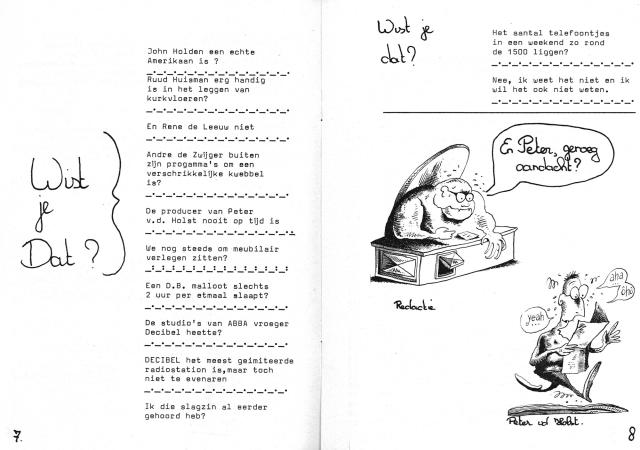 Wist
je
Dat ?
John Holden een echte
Amerikaan is ?
Ruud Huisman erg handig
is in het leggen van
kurkvloeren?
En Rene de Leeuw niet
Andre de Zwijger buiten
zijn progamma's om een
verschrikkelijke kwebbel
is?
De producer van Peter
v.d. Holst nooit op tijd is
We nog steeds om meubilair
verlegen zitten?
Een D.B. malloot slechts
2 uur per etmaal slaapt?
De studio's van ABBA vroeger
Decibel heette?
DECIBEL het meest geimiteerde
radiostation is,maar toch
niet te evenaren
Ik die slagzin al eerder
gehoord heb?
7.
Wist je
dat?
Het aantal telefoontjes
in een weekend zo rond
de 1500 liggen?
Nee, ik weet het niet en ik
wil het ook niet weten.
En Peter, genoeg
aandacht?
Redactie
aha
oho
yeah
...
Peter vd Holst.
8